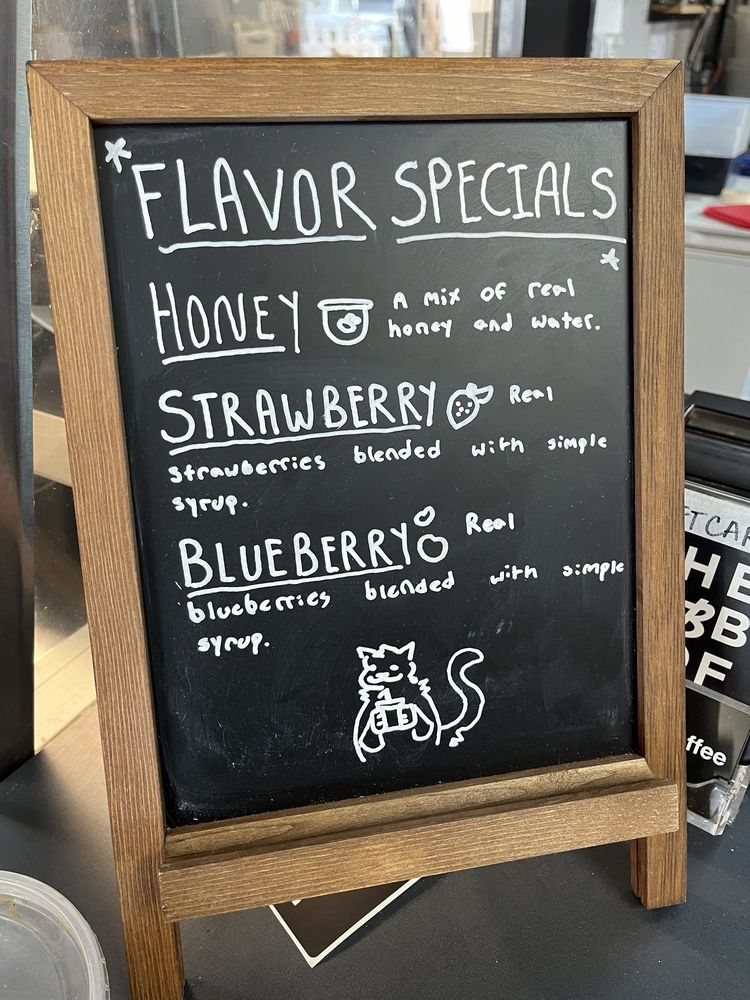 FLAVOR SPECIALS
HONEY A mix of real
honey and water.
STRAWBERRY Real
strawberries blended with simple
syrup.
BLUEBERRY Real
blueberries blended with simple
syrup.
ffee